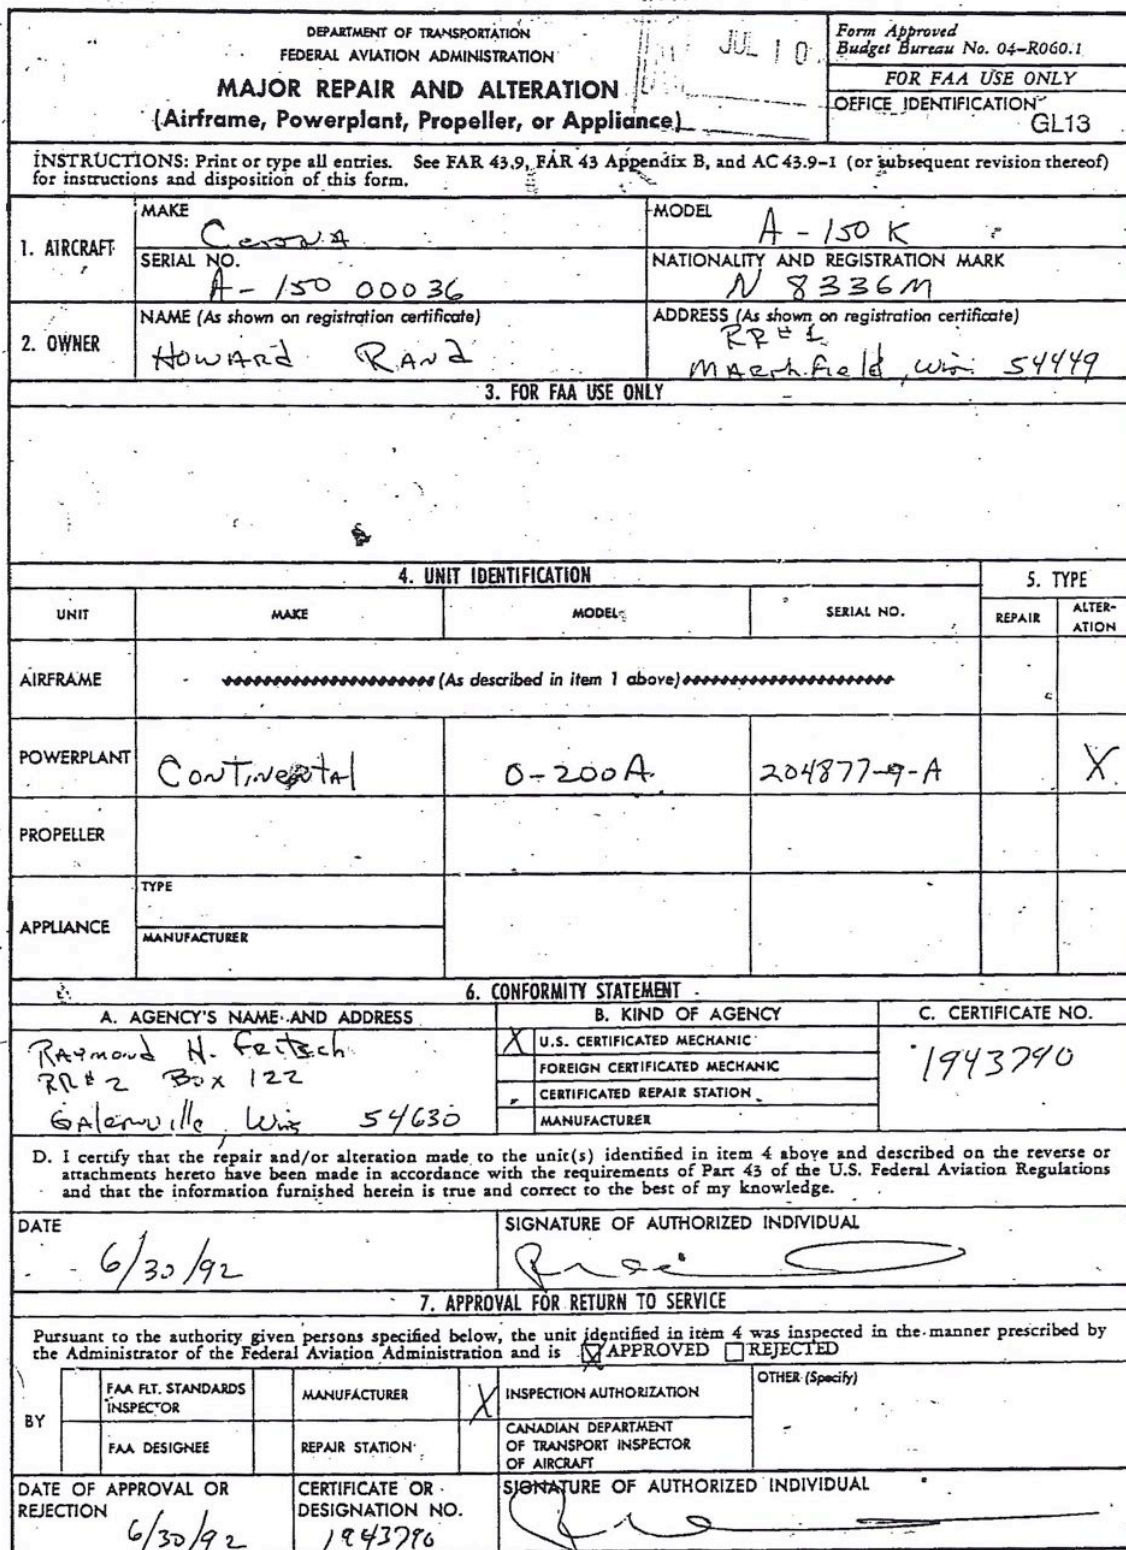 DEPARTMENT OF TRANSPORTATION
FEDERAL AVIATION ADMINISTRATION
MAJOR REPAIR AND ALTERATION
(Airframe, Powerplant, Propeller, or Appliance)
JUL 10
Form Approved
Budget Bureau No. 04-R060.1
FOR FAA USE ONLY
OFFICE IDENTIFICATION
GL13
INSTRUCTIONS: Print or type all entries. See FAR 43.9, FAR 43 Appendix B, and AC 43.9-1 (or subsequent revision thereof)
for instructions and disposition of this form.
1. AIRCRAFT
MAKE
Cessna
MODEL
A-150 K
SERIAL NO.
A-150 00036
NATIONALITY AND REGISTRATION MARK
N 8336M
2. OWNER
NAME (As shown on registration certificate)
Howard Rand
ADDRESS (As shown on registration certificate)
RR#1
Marshfield, Wis. 54449
3. FOR FAA USE ONLY
4. UNIT IDENTIFICATION
5. TYPE
UNIT
MAKE
MODEL
SERIAL NO.
REPAIR
ALTER-
ATION
AIRFRAME
(As described in item 1 above)
POWERPLANT
Continental
O-200A
204877-9-A
X
PROPELLER
APPLIANCE
TYPE
MANUFACTURER
6. CONFORMITY STATEMENT
A. AGENCY'S NAME AND ADDRESS
Raymond H. Fritsch
RR#2 Box 122
Galesville, Wis 54630
B. KIND OF AGENCY
X U.S. CERTIFICATED MECHANIC
FOREIGN CERTIFICATED MECHANIC
CERTIFICATED REPAIR STATION
MANUFACTURER
C. CERTIFICATE NO.
1943790
D. I certify that the repair and/or alteration made to the unit(s) identified in item 4 above and described on the reverse or
attachments hereto have been made in accordance with the requirements of Part 43 of the U.S. Federal Aviation Regulations
and that the information furnished herein is true and correct to the best of my knowledge.
DATE
6/30/92
SIGNATURE OF AUTHORIZED INDIVIDUAL
7. APPROVAL FOR RETURN TO SERVICE
Pursuant to the authority given persons specified below, the unit identified in item 4 was inspected in the manner prescribed by
the Administrator of the Federal Aviation Administration and is X APPROVED REJECTED
BY
FAA FLT. STANDARDS
INSPECTOR
MANUFACTURER
X INSPECTION AUTHORIZATION
OTHER (Specify)
FAA DESIGNEE
REPAIR STATION
CANADIAN DEPARTMENT
OF TRANSPORT INSPECTOR
OF AIRCRAFT
DATE OF APPROVAL OR
REJECTION
6/30/92
CERTIFICATE OR
DESIGNATION NO.
1943790
SIGNATURE OF AUTHORIZED INDIVIDUAL